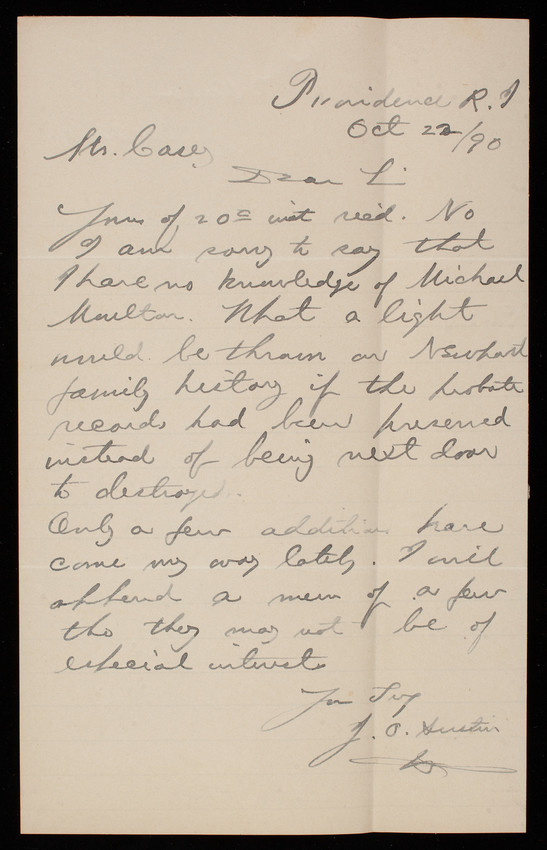 Providence R. I
Oct 22/90
Mr. Casey
Dear Si
Yours of 20 inst rec'd. No
I am sorry to say that
I have no knowledge of Michael
Moulton. What a light
would be thrown on Newport
family history if the probate
records had been preserved
instead of being next door
to destroyed.
Only a few additions have
come my way lately. I will
append a mem of a few
tho they may not be of
especial interest
J. O. Austin